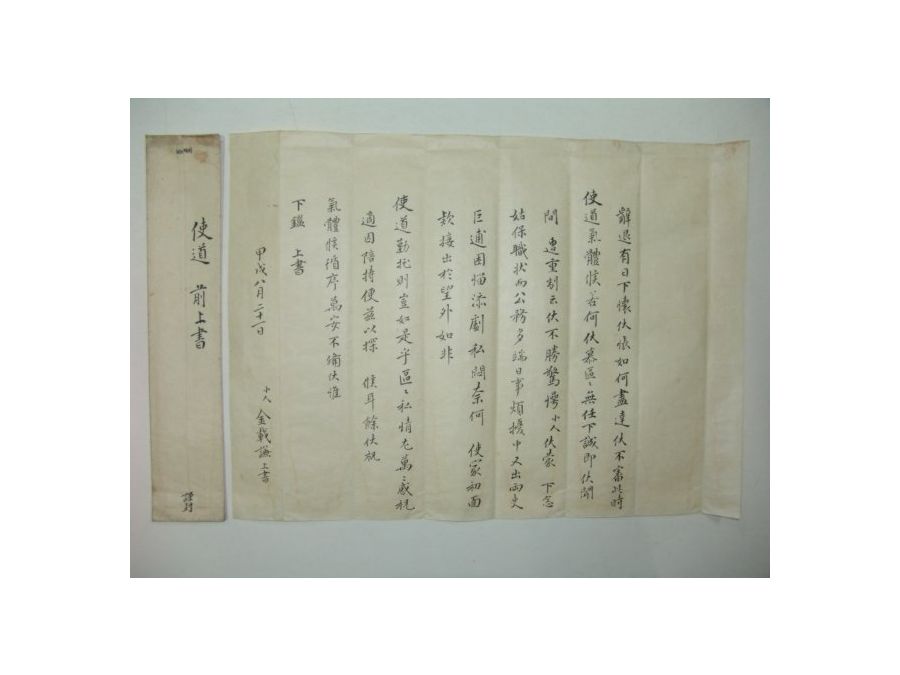 辭退有日下懷伏悵如何盡達伏不審此時
使道氣體候若何伏慕區〻無任下誠即伏聞
問 遭重制云伏不勝驚愕小人伏蒙 下念
姑保職狀而公務多端日事煩擾中又出兩吏
巨逋困惱添劇私悶奈何 使家初面
款接出於望外如非
使道勤托則豈如是乎區〻私情尤萬〻感祝
適因陪持便茲以探 候耳餘伏祝
氣體候循序萬安不備伏惟
下鑑 上書
甲戌八月二十一日
小人 金載謙上書
使道 前上書
謹封